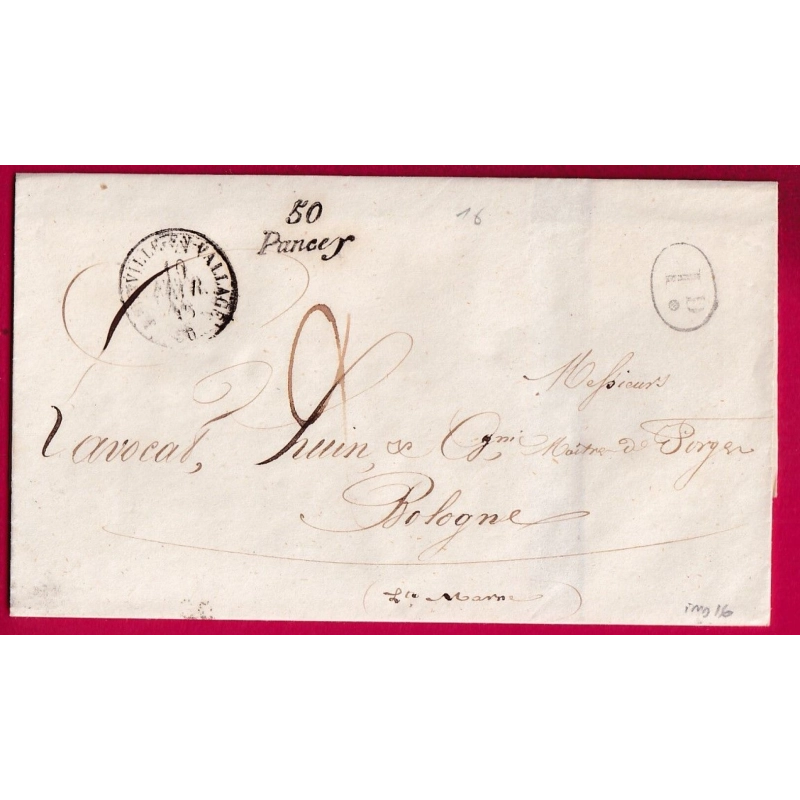 16
50
Pancey
VILLE-EN-VALLAGE
10
45
ID
Messieurs
Lavocat, Thuin, & Cgnie Maître de Forges
Bologne
Hte Marne
ind 16